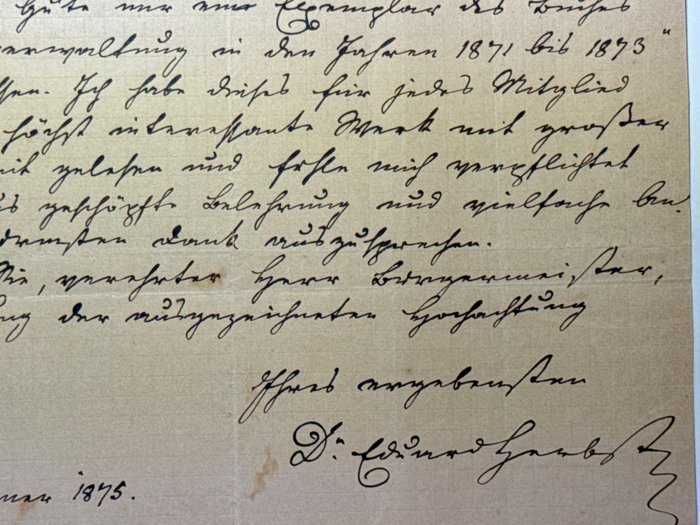 Güte mir ein Exemplar des Buches
erwaltung in den Jahren 1871 bis 1873"
ssen. Ich habe dieses für jedes Mitglied
höchst interessante Werk mit großer
eit gelesen und fühle mich verpflichtet
us geschöpfte Belehrung und vielfache An-
wärmsten Dank auszusprechen.
Sie, verehrter Herr Bürgermeister,
ng der ausgezeichneten Hochachtung
Ihres ergebensten
Dr. Eduard Herbst
ner 1875.